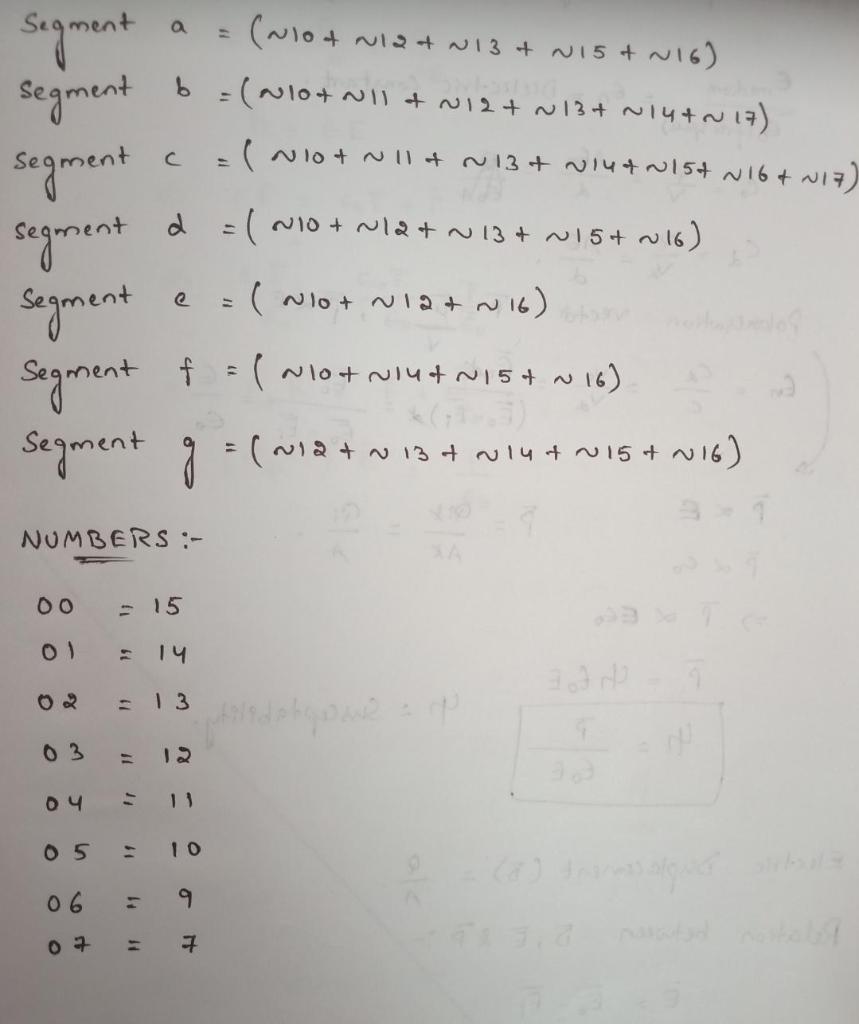 Segment a = (~10 + ~12 + ~13 + ~15 + ~16)
Segment b = (~10 + ~11 + ~12 + ~13 + ~14 + ~17)
Segment c = (~10 + ~11 + ~13 + ~14 + ~15 + ~16 + ~17)
Segment d = (~10 + ~12 + ~13 + ~15 + ~16)
Segment e = (~10 + ~12 + ~16)
Segment f = (~10 + ~14 + ~15 + ~16)
Segment g = (~12 + ~13 + ~14 + ~15 + ~16)
NUMBERS :-
00 = 15
01 = 14
02 = 13
03 = 12
04 = 11
05 = 10
06 = 9
07 = 7